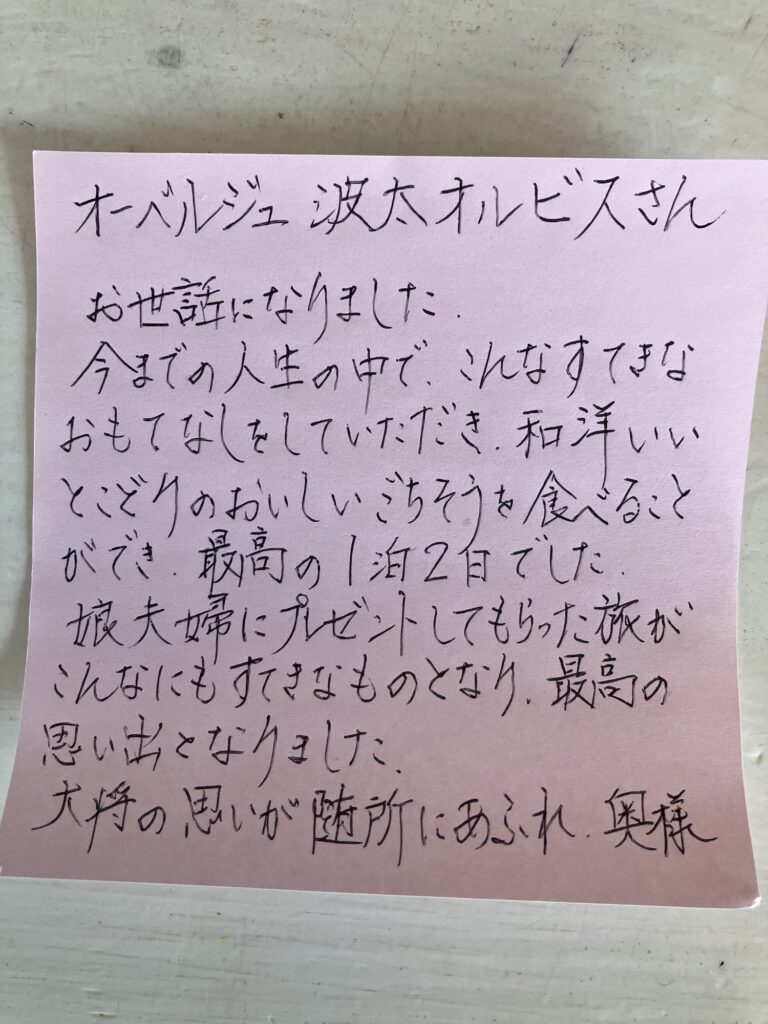 オーベルジュ 波太オルビスさん
お世話になりました.
今までの人生の中で、こんなすてきな
おもてなしをしていただき、和洋いい
とこどりのおいしいごちそうを食べること
ができ、最高の1泊2日でした.
娘夫婦にプレゼントしてもらった旅が
こんなにもすてきなものとなり、最高の
思い出となりました、
大将の思いが随所にあふれ、奥様